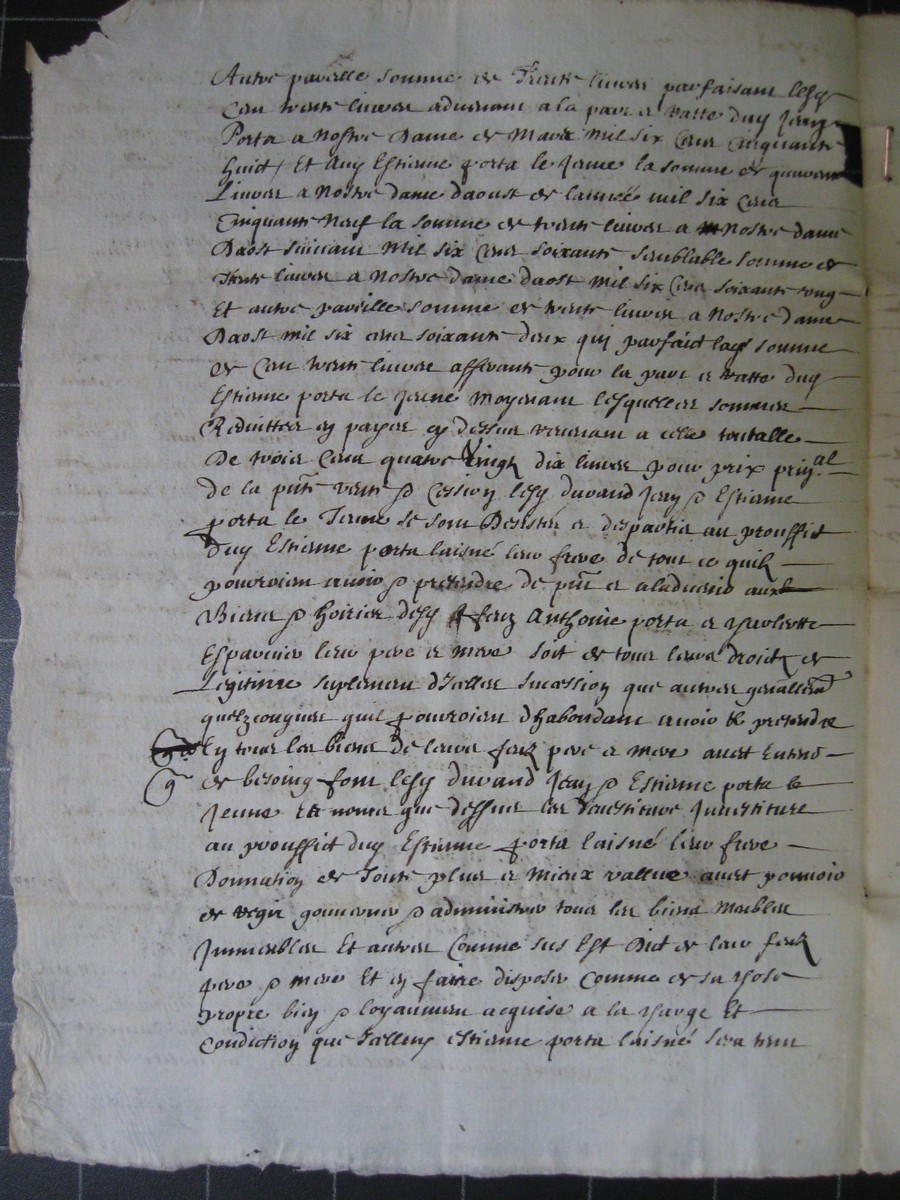 Autre pareille somme de trente livres parfaisant lesd
Cent trente livres advenant a la part et ratte dud Jean
Porta a Nostre dame de Mars mil six cens cinquante
huict / Et aud Estienne porta le Jeune la somme de quarante
Livres a Nostre dame daoust de lannée mil six cens
Cinquante Neuf la somme de trente livres a Nostre dame
Daost suivant Mil six cens soixante semblable somme de
Trente livres a Nostre dame daost mil six cens soixante ung
Et autre pareille somme de trente livres a Nostre dame
Daost mil six cens soixante deux qui parfaict lad somme
de Cent trente livres afferante pour la part et ratte dud
Estienne porta le Jeune Moyenant lesquelles sommes
Reduittes et payes cy dessus revenant a celle toutalle
De trois Cens quatre vingt dix livres pour prix prin.al
de la pnte vente & Cession lesd durand Jean & Estienne
porta le Jeune se sont Desistés et despartis au prouffict
dud Estienne porta laisné leur frere de tout ce quilz
pourroient avoir & pretendre de pnt et a ladvenir aux
Biens & hoiries desd feuz Anthoine porta et
Esparvier leur pere et mere soit de tous leurs droictz de
Legitime suplement dicelle sucession que autres
quelzconques quilz pourroient dhabondant avoir & pretendre
En tous les biens de leurs feuz pere et mere
de besoing font lesd durand Jean & Estienne porta le
Jeune Et noms que dessus les Investiture
au prouffict dud Estienne porta laisné leur frere
Donnation de Toute plus et mieux vallue avec pouvoir
de regir gouverner & administrer tous les biens Meubles
Immeubles Et autres Comme sus est Dict de leur feuz
pere & mere Et en faire disposer Comme de sa chose
propre bien & loyaument acquise a la charge Et
Condiction que Icelluy estienne porta laisné sera tenu